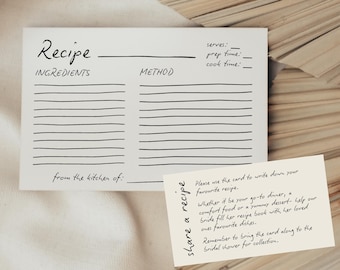 Recipe
serves:
prep time:
cook time:
INGREDIENTS
METHOD
from the kitchen of:
share a recipe
Please use the card to write down your
favourite recipe.
Whether it be your go-to dinner, a
comfort food or a yummy dessert, help our
bride fill her recipe book with her loved
ones favourite dishes.
Remember to bring the card along to the
bridal shower for collection.